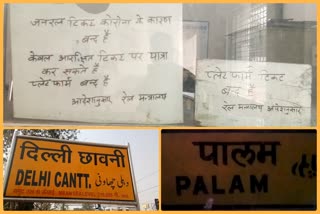 जनरल टिकट कोरोना के कारण
बन्द है
केवल आरक्षित टिकट पर यात्रा
कर सकते हैं
प्लेट फार्म बन्द है
आदेशानुसार रेल मंत्रालय
प्लेट फार्म टिकट
बन्द है
रेल मंत्रालय आदेशानुसार
दिल्ली छावनी
DELHI CANTT. دہلی چھاؤنی
पालम
PALAM